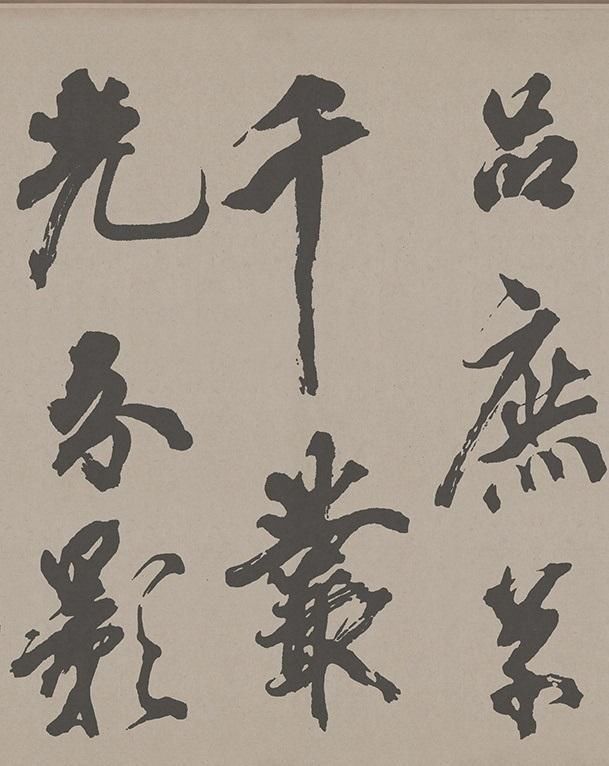 品庶
千叢
光分影